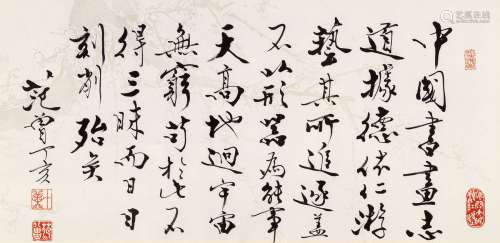 中國書畫志
道據德依仁游
藝其所進逐蓋
不以形器為能事
天高地迥宇宙
無窮苟於此不
得三昧而日日
刻削殆矣
范曾丁亥